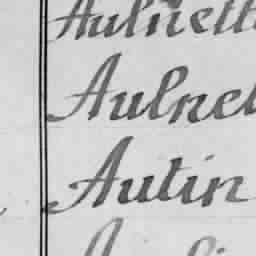 Aulnett
Aulnet
Autin